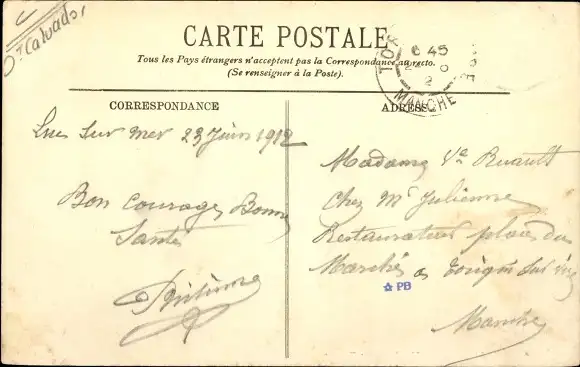 Dt Calvados
CARTE POSTALE
Tous les Pays étrangers n'acceptent pas la Correspondance au recto.
(Se renseigner à la Poste).
6 45
MANCHE
CORRESPONDANCE
ADRESSE
Luc Sur mer 23 Juin 1912
Bon courage, Bonne
Santé
Madame Ve Ruault
Chez Mr Julienne
Restaurateur place du
Marché a Torigni sur vire
PB
Manche